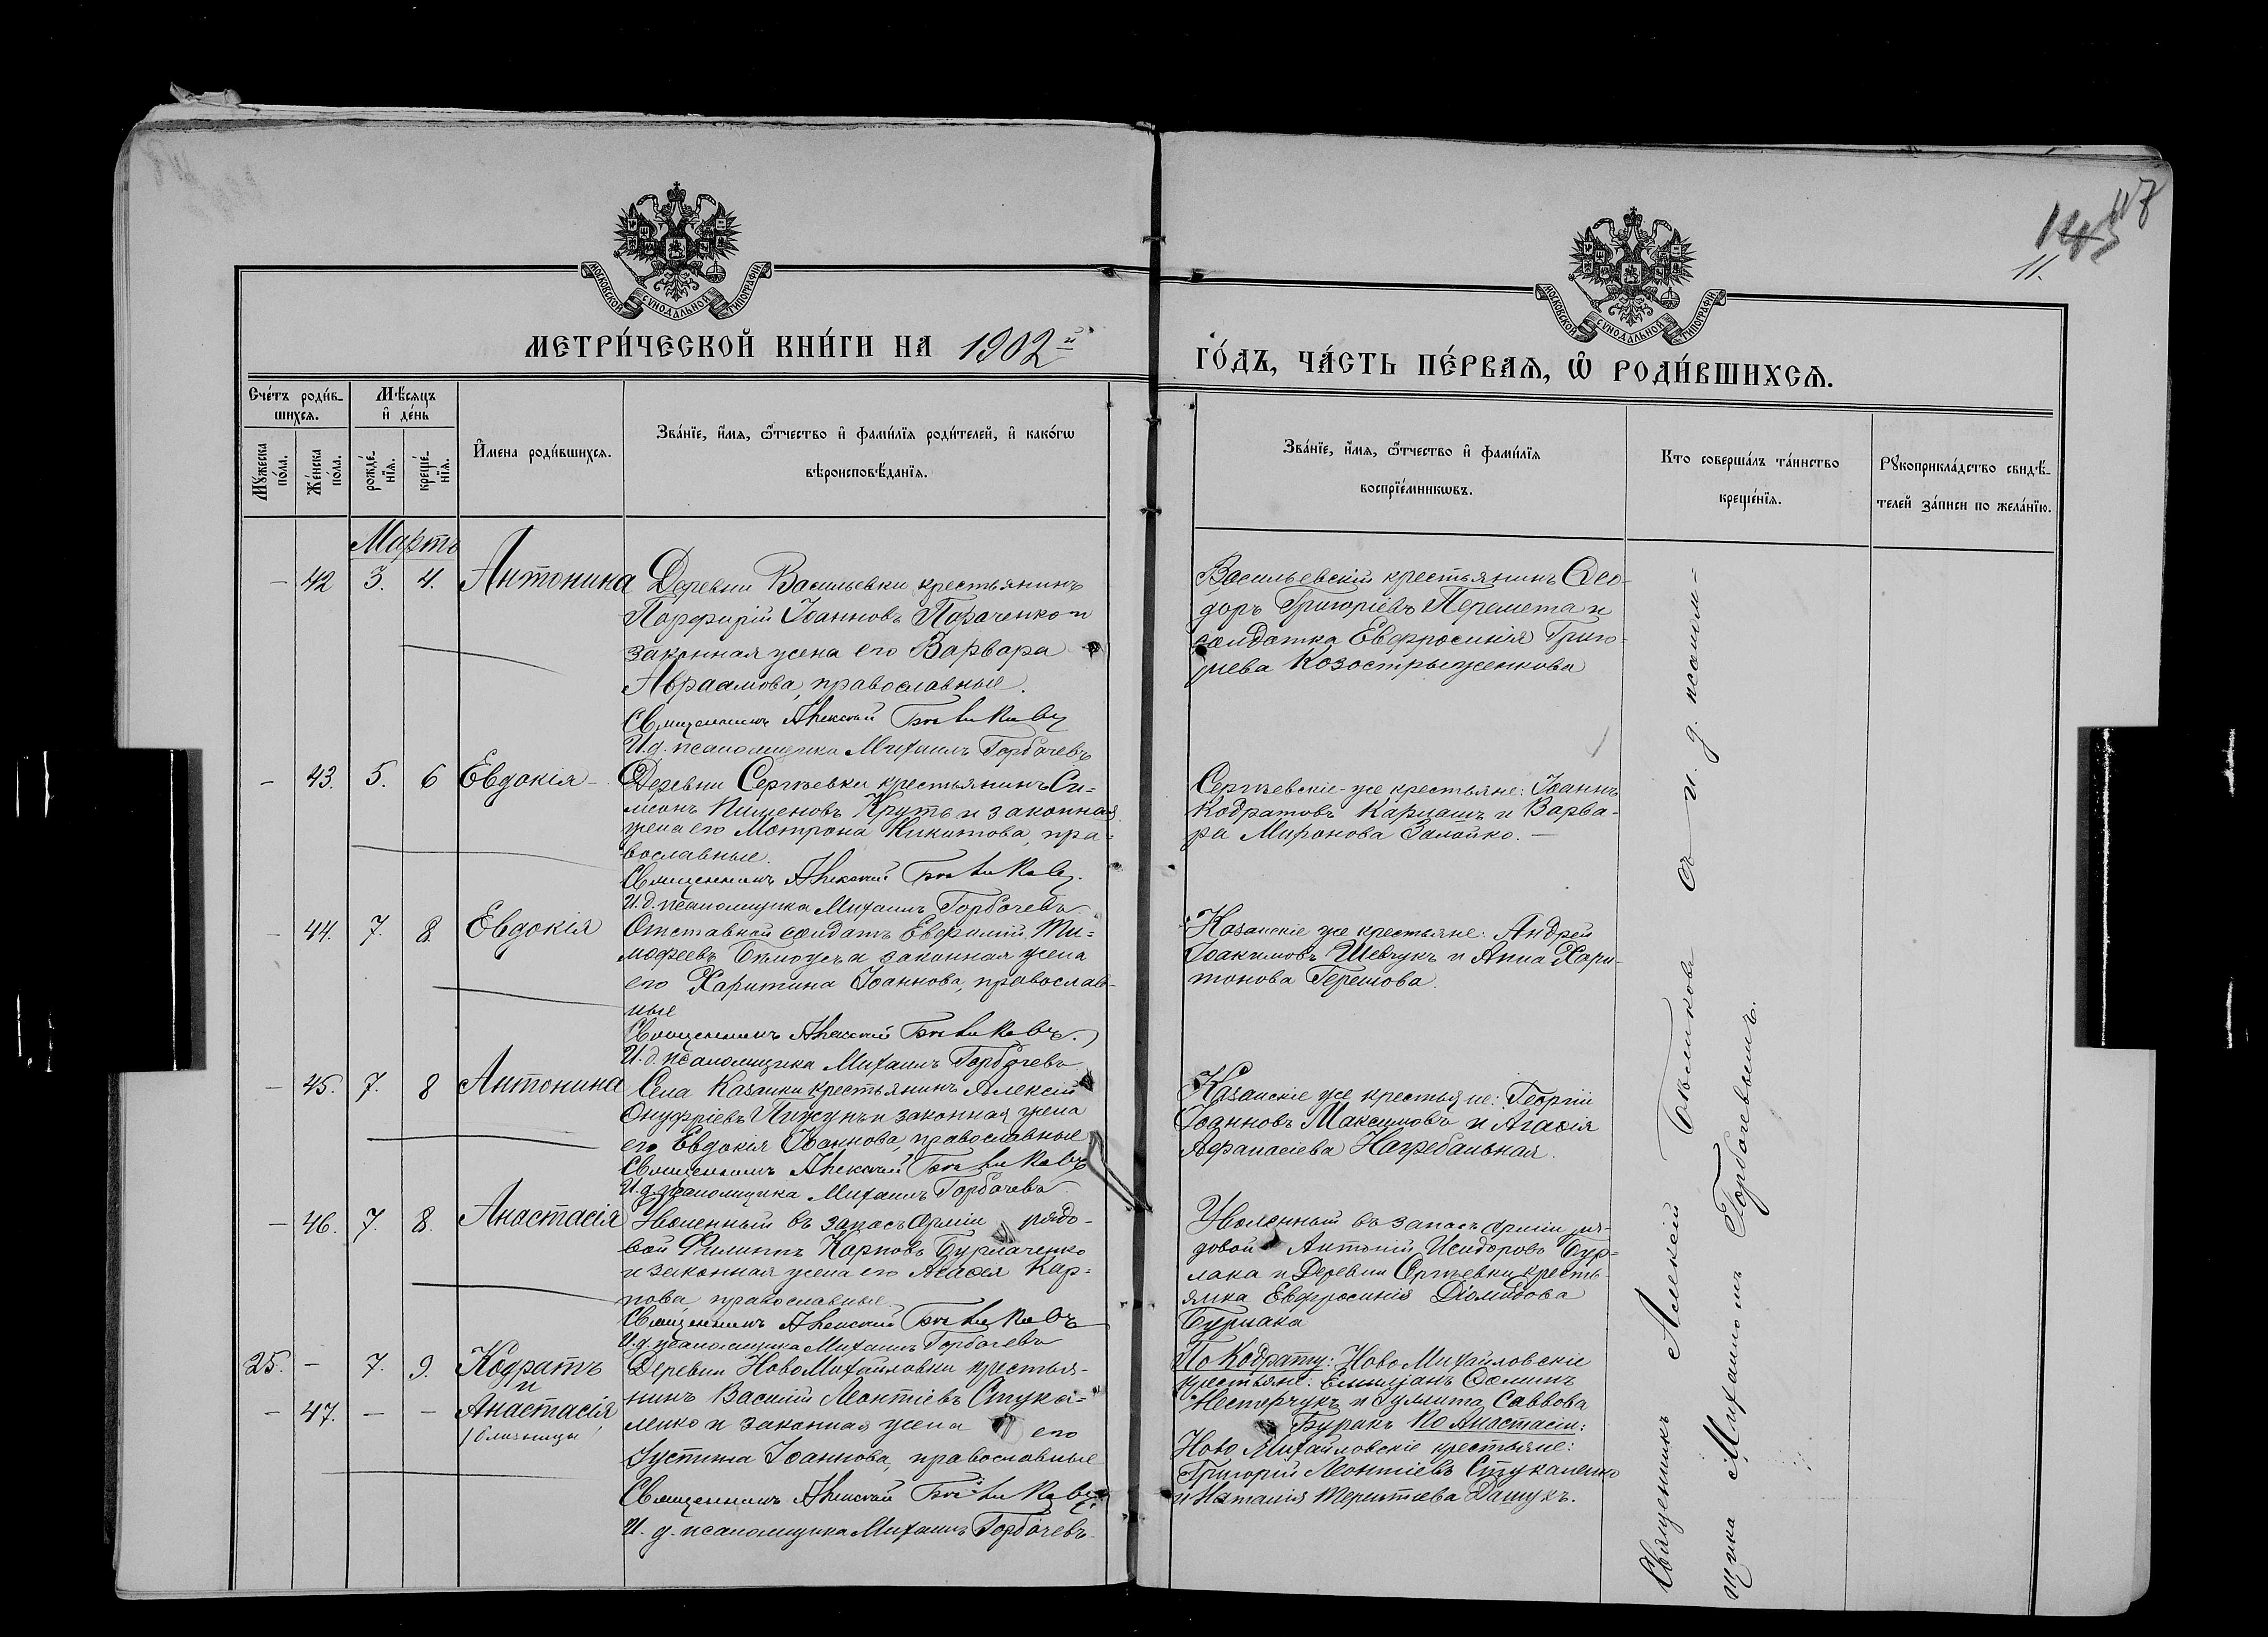 118
143
11.
МОСКОВСКОЙ СУНОДАЛЬНОЙ ТИПОГРАФІИ
МОСКОВСКОЙ СУНОДАЛЬНОЙ ТИПОГРАФІИ
МЕТРИ́ЧЕСКОЙ КНИ́ГИ НА 1902й
ГО́ДЪ, ЧА́СТЬ ПЕ́РВАѦ, Ѡ҆ РОДИ́ВШИХСѦ.
Сче́тъ роди́в-
шихсѧ.
Мѣ́сѧцъ
и҆ де́нь
Мꙋ́жеска
по́ла.
Же́нска
по́ла.
рожде́-
нїѧ.
креще́-
нїѧ.
И҆́мена роди́вшихсѧ.
Зва́нїе, и҆́мѧ, ѻ҆́тчество и҆ фами́лїѧ роди́телей, и҆ како́гѡ
вѣроисповѣ́данїѧ.
Зва́нїе, и҆́мѧ, ѻ҆́тчество и҆ фами́лїѧ
воспрїе́мникѡвъ.
Кто соверша́лъ та́инство
креще́нїѧ.
Рꙋкоприкла́дство свидѣ́-
телей за́писи по жела́нїю.
Мартъ
– 42 3. 4. Антонина
Деревни Васильевки крестьянинъ
Порфирій Іоанновъ и
законная жена его Варвара
Авраамова, православные.
Священникъ Алексій Боъликовъ
И.д. псаломщика Михаилъ Горбачевъ
Васильевскій крестьянинъ Ѳео-
доръ Григоріевъ Перемета и
солдатка Евфросинія Григо-
риева Козостриженкова
– 43. 5. 6 Евдокія
Деревни Сергѣевки крестьянинъ Си-
меонъ Пименовъ Крутъ и законная
жена его Мотрона Никитова, пра-
вославные.
Священникъ Алексій
И.д. псаломщика Михаилъ Горбачевъ
Сергѣевскіе же крестьяне: Іоаннъ
Кодратовъ Карцашъ и Варва-
ра Миронова Залойко. –
– 44. 7. 8. Евдокія
Отставной солдатъ Евфимій Ти-
мофеевъ и законная жена
его Харитина Іоаннова, православ-
ные
Священникъ Алексій
И.д. псаломщика Михаилъ Горбачевъ
Казанскіе же крестьяне: Андрей
Іоакимовъ Шевчукъ и Анна Хари-
тонова Герешова.
– 45. 7. 8 Антонина
Села Казанки крестьянинъ Алексій
Онуфріевъ и законная жена
его Евдокія Іоаннова, православные
Священникъ Алексій
И.д. псаломщика Михаилъ Горбачевъ
Казанскіе же крестьяне: Георгій
Іоанновъ Максимовъ и Агаѳія
Афанасіева Нагребальная.
– 46. 7. 8. Анастасія
Уволенный въ запасъ арміи рядо-
вой Филиппъ Карповъ Бурлаченко
и законная жена его Агаѳія Кар-
пова, православные
Священникъ Алексій
И.д. псаломщика Михаилъ Горбачевъ
Уволенный въ запасъ арміи ря-
довой Антоній Исидоровъ Бур-
лака и Деревни Сергѣевки кресть-
янка Евфросинія Діомидова
Бурлака
25. – 7. 9. Кодратъ
и
– 47. – – Анастасія
/близнецы/
Деревни НовоМихайловки крестья-
нинъ Василій Леонтіевъ Стука-
ленко и законная жена его
Іустина Іоаннова, православные
Священникъ Алексій
И. д. псаломщика Михаилъ Горбачевъ
По Кодрату: НовоМихайловскіе
крестьяне: Емиліанъ Ѳоминъ
Нестерчукъ и Іулита Саввова
Буракъ По Анастасіи:
Ново Михайловскіе крестьяне:
Григорій Леонтіевъ Стукаленко
и Наталія Терентіева Дашукъ.
Священникъ Алексій съ и. д. псалом-
щика Михаиломъ Горбачевымъ.